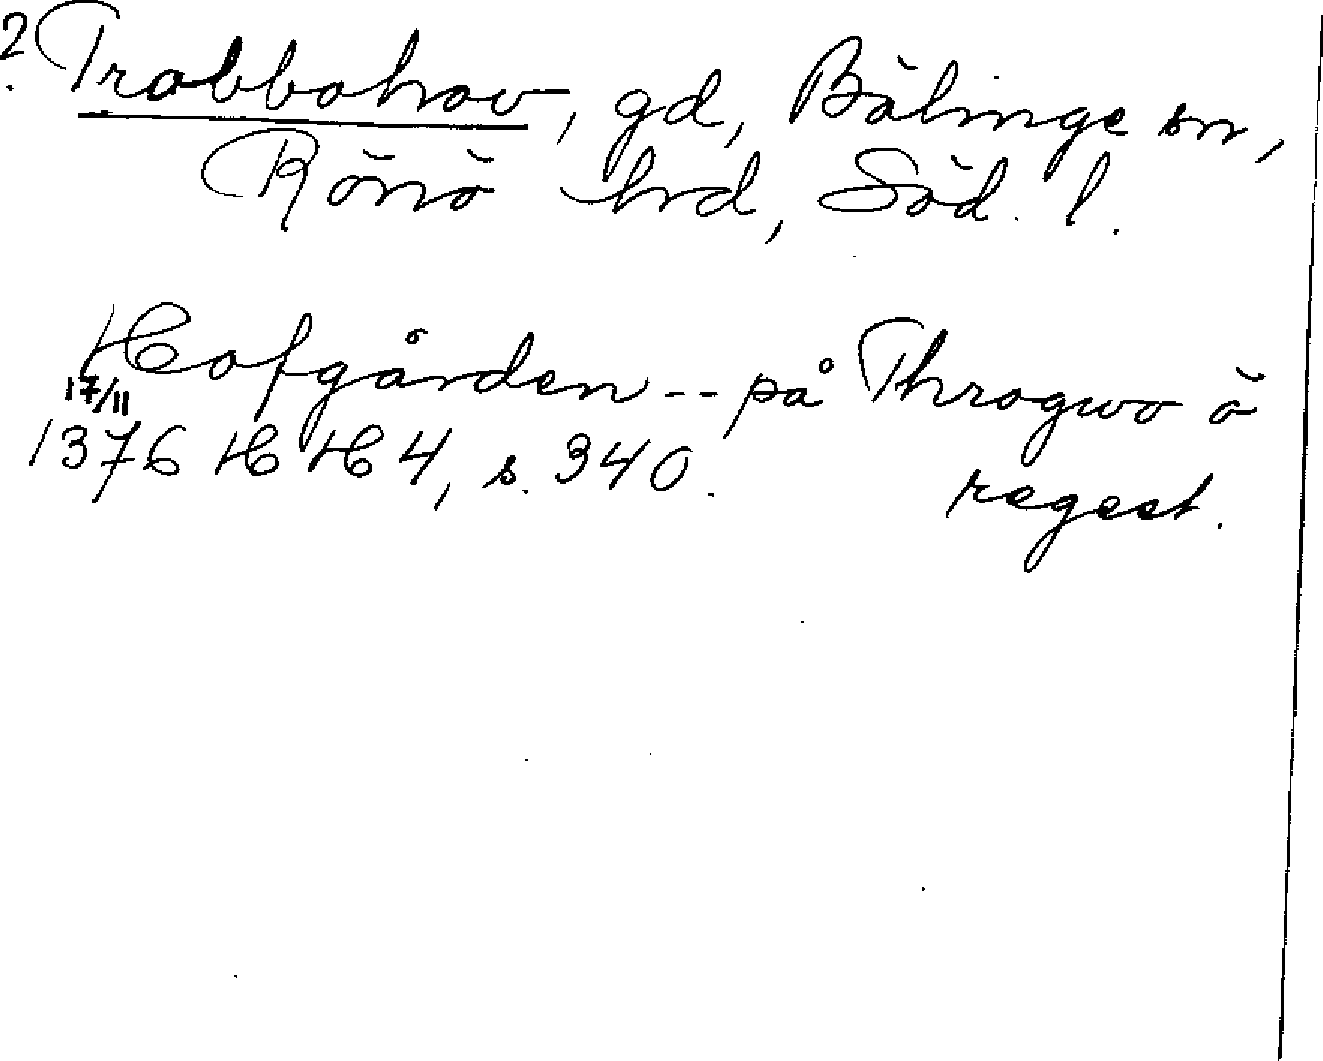 2. Trobbohov, gd, Bälinge sn,
Rönö hrd, Söd. l.
Hofgården -- på Throgwo ö
17/11
1376 HH 4, s. 340. regest.